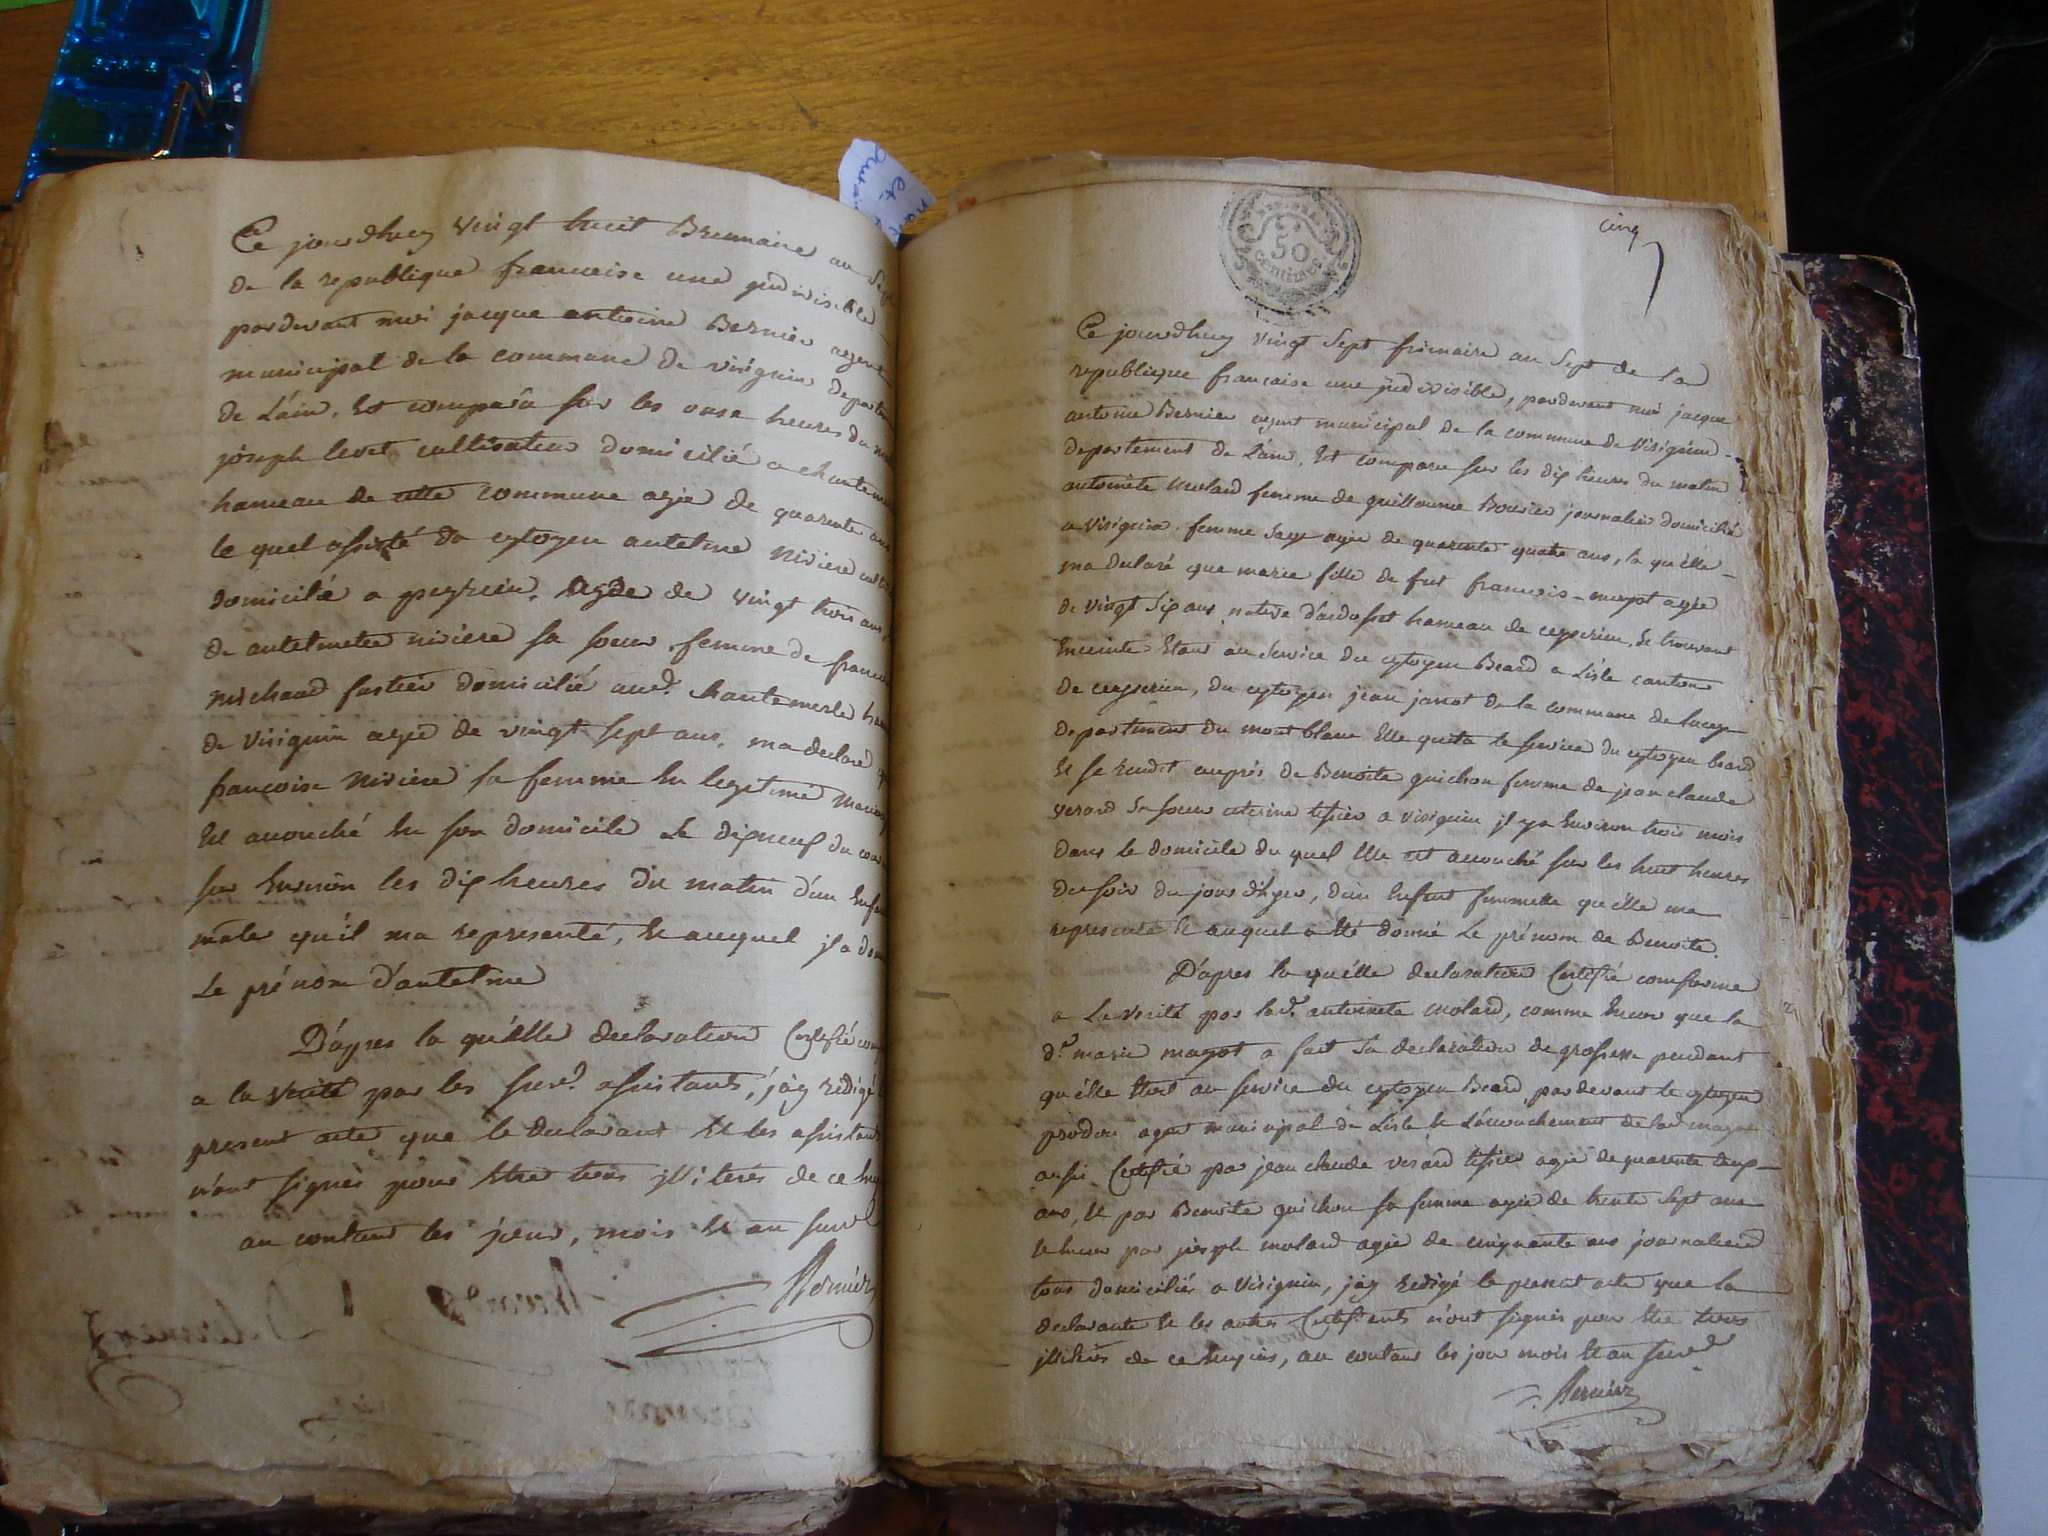 Ce jourdhuy vingt huit Brumaire an Sept
de la republique francoise une jndivisible
pardevant moi jacque antoine Bernier agent
municipal de la commune de visignin departem
de L'ain, Est comparû sur les onse heures du ma
joseph levet cultivateur domicilié a chanteme
hameau de cette commune agée de quarente ans
le quel assisté du cytoyen antelme niviere cult
domicilié a peyzieu, agée de vingt trois ans,
de antelmette niviere sa soeur, femme de francoi
michaud domicilié aud. chantemerle ha
de visignin agée de vingt sept ans, ma declaré q
francoise niviere sa femme En legitime Mariag
Est acouché En son domicile Le dixneuf du cou
sur Environ les dix heures du matin d'un Enfan
mâle qu'il ma representé, Et auquel jl a don
Le prénom d'antelme
D'apres la qu'elle declaration Certifié con
a la verité par les surd. assistants, j'ay redigé l
present acte, que le declarant Et les assistant
n'ont signés pour Etre tous jlliterés de ce En
au contenu les jour, mois Et an surd
Bernier
cinq
50
Centimes
Ce jourdhuy vingt Sept frimaire an Sept de la
republique francaise une jndivisible, pardevant moi jacque
antoine Bernier agent municipal de la commune de Visignin
departement de L'ain, Est compare sur les dix heures du matin
antoinete Molard femme de guillaume Bouvier journalier domicilié
a Visignin, femme sage agée de quarente quatre ans, la qu'elle
ma declaré que marie fille de fut francois magot agée
de vingt six ans, native d'ardosset hameau de ceyserieu, Se trouvant
Enceinte Etant au Service du cytoyen Beard a L'isle canton
de ceyserieu, du cytoyen jean janot de la commune de lucey
departement du mont blanc Elle quita le service du cytoyen beard
Et se rendit auprés de Benoite guichon femme de jean claude
verard Sa soeur uterine tissier a visignin jl y a Environ trois mois
dans le domicile du quel Elle est acouché sur les huit heures
du soir du jour d'hyer, d'un Enfant fummelle qu'elle ma
representé Et auquel a Eté donné Le prénom de Benoite.
D'apres la qu'elle declaration Certifié conforme
a La verité par lad. antoinete Molard, comme Encore que la
d. marie magot a fait Sa declaration de grossesse pendant
qu'elle Etoit au service du cytoyen Beard, pardevant le cytoyen
agent municipal de L'isle Et L'acouchement de lad magot
aussi Certifié par jean claude verard tissier agée de quarente
ans, Et par Benoite guichon sa femme agée de trente Sept ans
Encore par joseph molard agée de cinquante ans journalier
tous domiciliés a Visignin, j'ay redigé le present acte que la
declarante Et les autres Certifiants n'ont signés pour Etre tous
jlliterés de ce Enquis, au contenu les jour mois Et an surd
Bernier